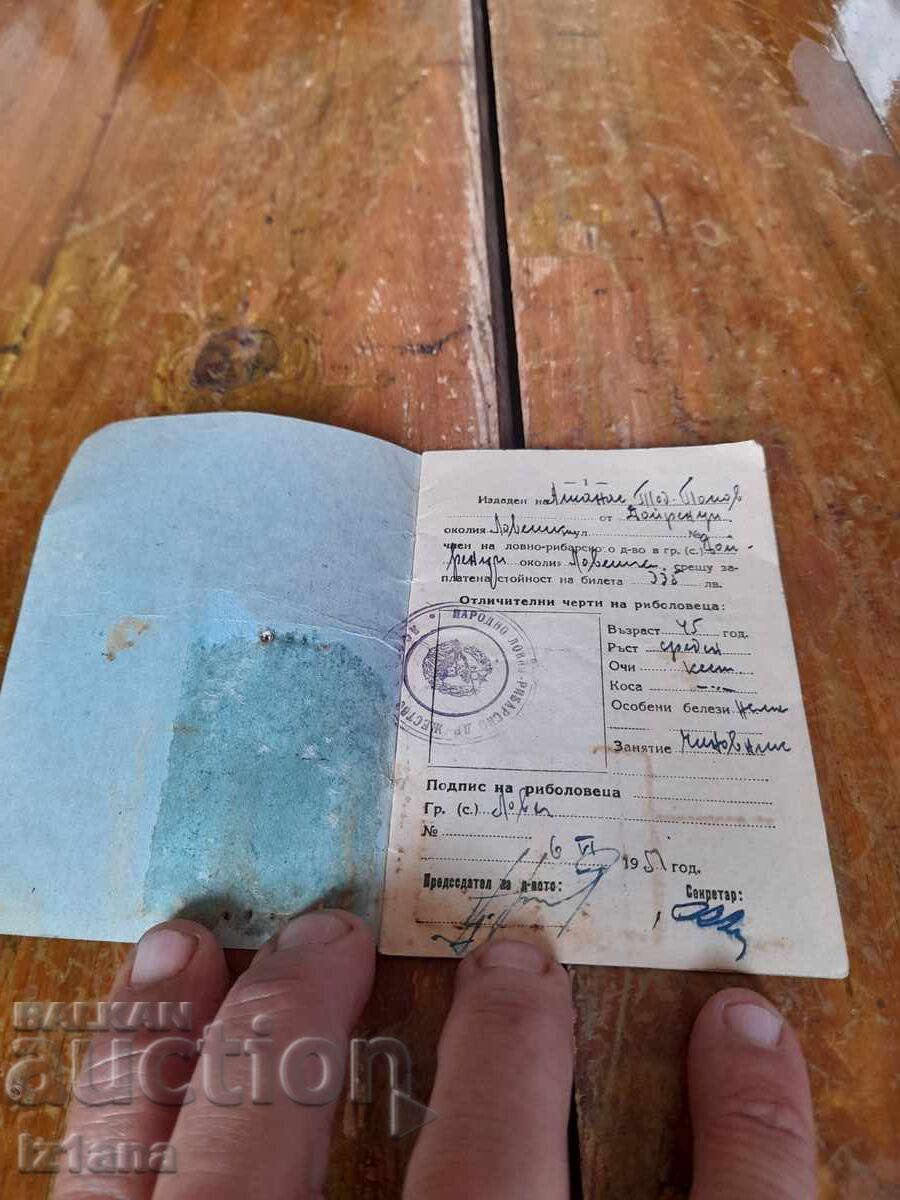 1
Издаден на Атанас Тод. Топов
от Дойренци
околия Ловешка ул. №
член на ловно-рибарско д-во в гр. (с.) Дой-
ренци околия Ловешка срещу за-
платена стойност на билета 338 лв.
Отличителни черти на риболовеца:
НАРОДНО ЛОВНО-РИБАРСКО ДРУЖЕСТВО
Възраст 45 год.
Ръст среден
Очи кест
Коса
Особени белези
Занятие Чиновник
Подпис на риболовеца
Гр. (с.)
№
6 VI 1951 год.
Председател на д-вото: Секретар:
BALKAN
auction
iz1ana